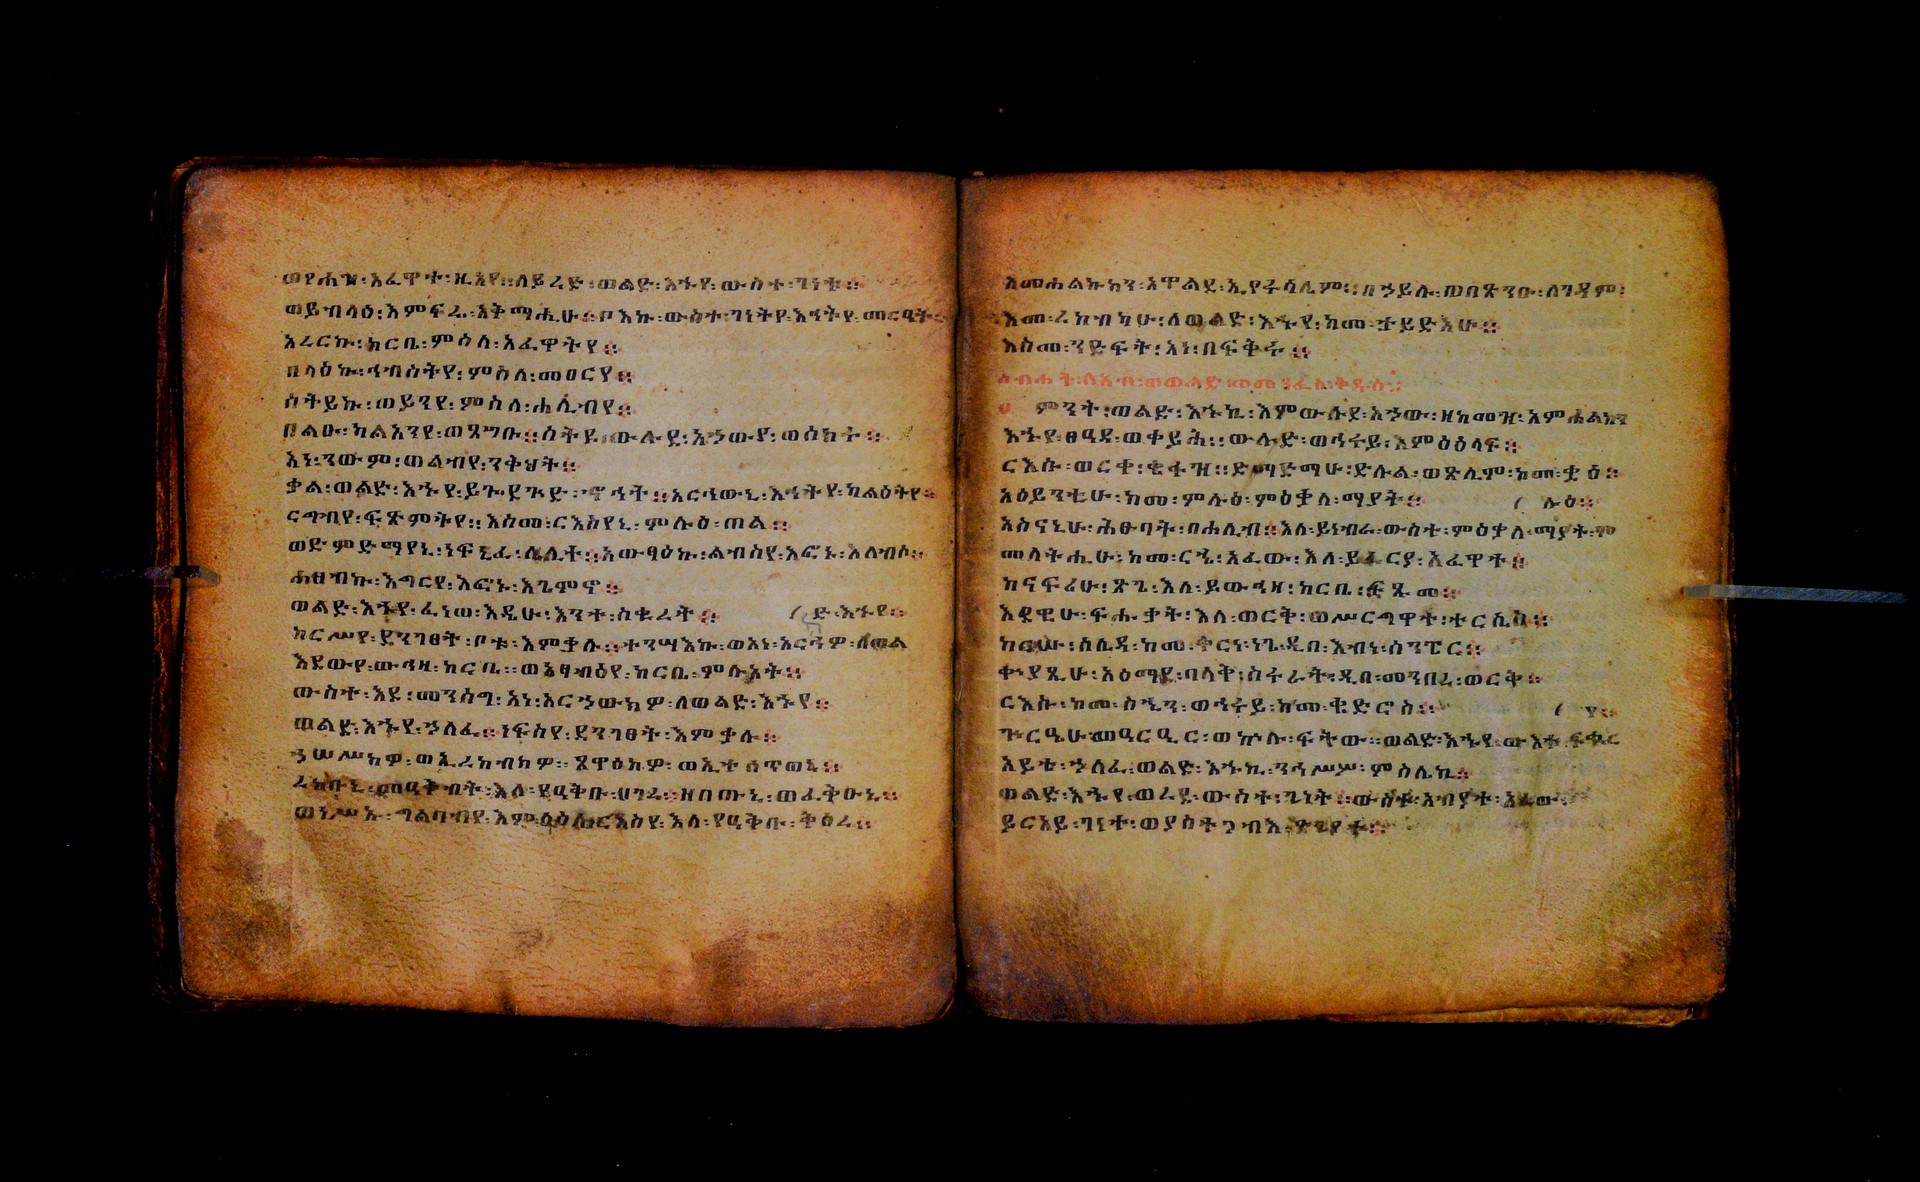 ወየሐዝ፡አፈዋተ፡ዚአየ።ለይረድ፡ወልድ፡እኁየ፡ውስተ፡ገነቱ።
ወይብላዕ፡እምፍሬ፡አቅማሒሁ።ቦእኩ፡ውስተ፡ገነትየ፡እኅትየ፡መርዓት።
አረርኩ፡ከርቤ፡ምስለ፡አፈዋትየ።
በላዕኩ፡ኅብስትየ፡ምስለ፡መዐርየ።
ሰትይኩ፡ወይንየ፡ምስለ፡ሐሊብየ።
በልዑ፡ካልአንየ፡ወጽግቡ።ስትዩ፡ውሉደ፡አኀውየ፡ወሰክሩ።
አነ፡ንውም፡ወልብየ፡ንቅህት።
ቃል፡ወልድ፡እኁየ፡ይጐደጕድ፡ኆኅት።አርኅውኒ፡እኅትየ፡ካልዕትየ።
ርግብየ፡ፍጽምትየ።እስመ፡ርእስየኒ፡ምሉዕ፡ጠል።
ወድምድማየኒ፡ነፍኒፈ፡ሌሊት።አውፃዕኩ፡ልብስየ፡እፎኑ፡እለብሶ።
ሐፀብኩ፡እግርየ፡እፎኑ፡እጌምኖ።
ወልድ፡እኁየ፡ፈነወ፡እዴሁ፡እንተ፡ስቁረት። ድ፡እኁየ።
ከርሥየ፡ደንገፀት፡ቦቱ፡እምቃሉ።ተንሣእኩ፡ወአነ፡አርኅዎ፡ለወል
እደውየ፡ውኅዛ፡ከርቤ።ወአፃብዕየ፡ከርቤ፡ምሉአት።
ውስተ፡እደ፡መንስግ፡አነ፡አርኀውክዎ፡ለወልድ፡እኁየ።
ወልድ፡እኁየ፡ኀለፈ።ነፍስየ፡ደንገፀት፡እምቃሉ።
ኀሠሥክዎ፡ወኢረከብክዎ።ጸዋዕክዎ፡ወኢተሰጥወኒ።
ረከቡኒ፡መዓቅብት፡እለ፡የዓቅቡ፡ሀገረ።ዘበጡኒ፡ወፈቅዑኒ።
ወነሥኡ፡ግልባብየ፡እምላዕሉ፡ርእስየ፡እለ፡የዓቅቡ፡ቅጽረ።
አመሐልኩክን፡አዋልደ፡ኢየሩሳሌም።በኃይሉ፡ወበጽንዑ፡ለገዳም፡
እመ፡ረከብካሁ፡ለወልድ፡እኁየ፡ከመ፡ትይድእሁ።
እስመ፡ንድፍት፡አነ፡በፍቅሩ።
ስብሐት፡ለአብ፡ወወልድ፡ወመንፈስ፡ቅዱስ።
ምንት፡ወልድ፡እኁኪ፡እምውሉደ፡አኀው፡ዘከመዝ፡አምሐልክነ
እኁየ፡ፀዓዳ፡ወቀይሕ።ውሉድ፡ወኅሩይ፡እምዕዕላፍ።
ርእሱ፡ወርቀ፡ቂፋዝ።ድማድማሁ፡ድሉል፡ወጽሊም፡ከመ፡ቋዕ።
አዕይንቲሁ፡ከመ፡ምሉዕ፡ምዕቃለ፡ማያት። ሉዕ።
አስናኒሁ፡ሕፁባት፡በሐሊብ።እለ፡ይነብራ፡ውስተ፡ምዕቃለ፡ማያት፡ም
መላትሒሁ፡ከመ፡ርኄ፡አፈው፡እለ፡ይፈርያ፡አፈዋተ።
ከናፍሪሁ፡ጽጌ፡እለ፡ይውኅዛ፡ከርቤ፡ፍጹመ።
እደዊሁ፡ፍሑቃት፡እለ፡ወርቅ፡ወሥርግዋት፡ተርሴስ።
ከርሡ፡ሰሌዳ፡ከመ፡ቀርነ፡ነጌ፡ዲበ፡እብነ፡ሰንፔር።
ቀኀያጺሁ፡አዕማደ፡ባላቅ፡ስፉራት፡ዲበ፡መንበረ፡ወርቅ።
ርእሱ፡ከመ፡ስኂን፡ወኅሩይ፡ከመ፡ቄድሮስ። የ።
ጕርዔሁ፡መዓርዒር፡ወኵሉ፡ፍትው።ወልድ፡እኁየ፡ውእቱ፡ፍቁር
አይቴ፡ኀለፈ፡ወልድ፡እኁኪ፡ንኅሥሥ፡ምስሌኪ።
ወልድ፡እኁየ፡ወረደ፡ውስተ፡ገነት።ውስተ፡አብያተ፡አፈው።
ይርአይ፡ገነተ፡ወያስተጋብእ፡ጽጌያተ።